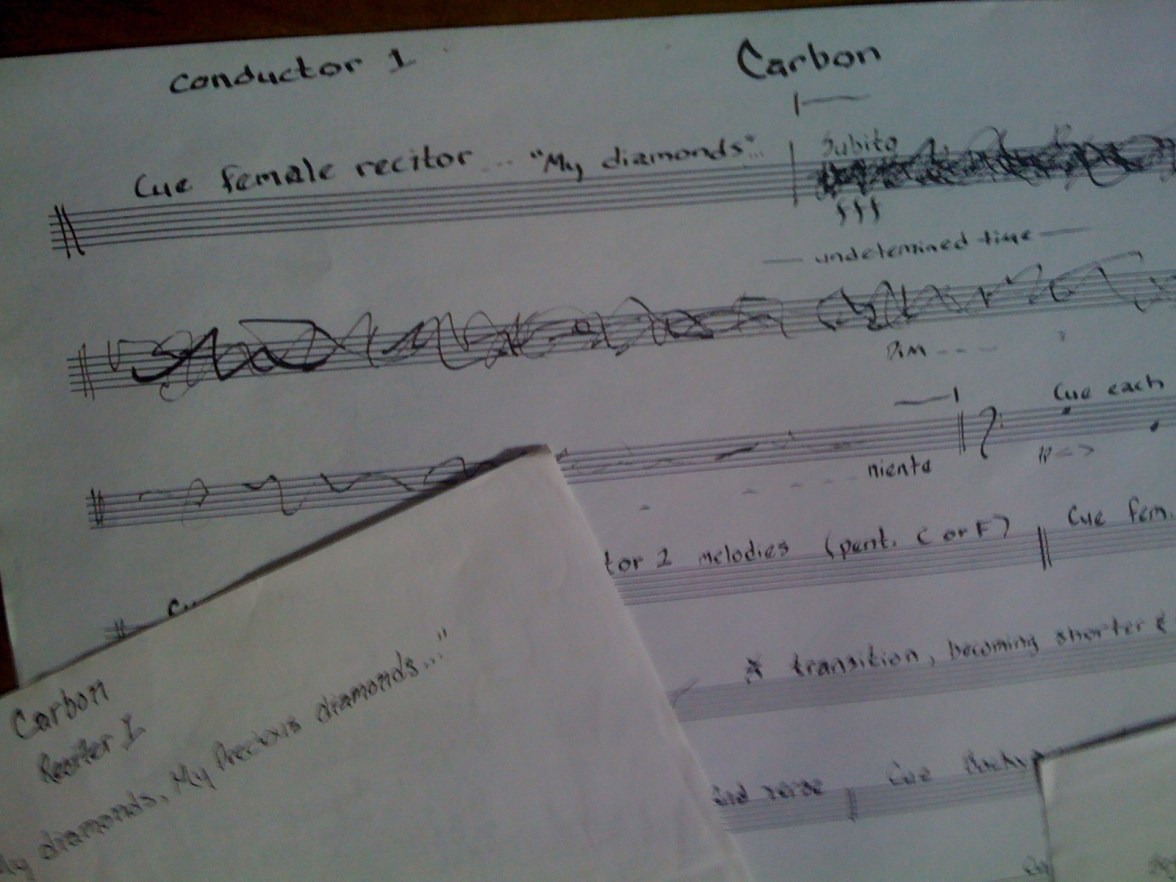 conductor 1
Carbon
Cue female recitor ... "My diamonds"...
Subito
fff
undetermined time
Dim - - -
Cue each
niente
tor 2 melodies (pent. C or F)
Cue fem.
* transition, becoming shorter &
2nd verse
Cue
Carbon
Reciter I
My diamonds, My Precious diamonds..."